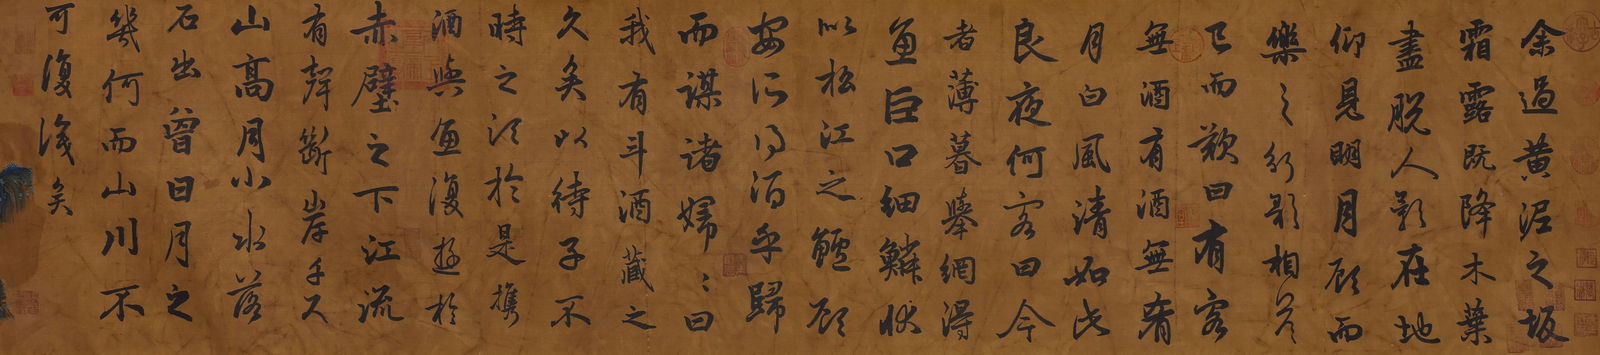 余過黃泥之坂
霜露既降木葉
盡脫人影在地
仰見明月顧而
樂之行歌相答
已而歎曰有客
無酒有酒無肴
月白風清如此
良夜何客曰今
者薄暮舉網得
魚巨口細鱗狀
似松江之鱸顧
安所得酒乎歸
而謀諸婦々曰
我有斗酒藏之
久矣以待子不
時之須於是攜
酒與魚復遊於
赤壁之下江流
有聲斷岸千尺
山高月小水落
石出曾日月之
幾何而山川不
可復識矣